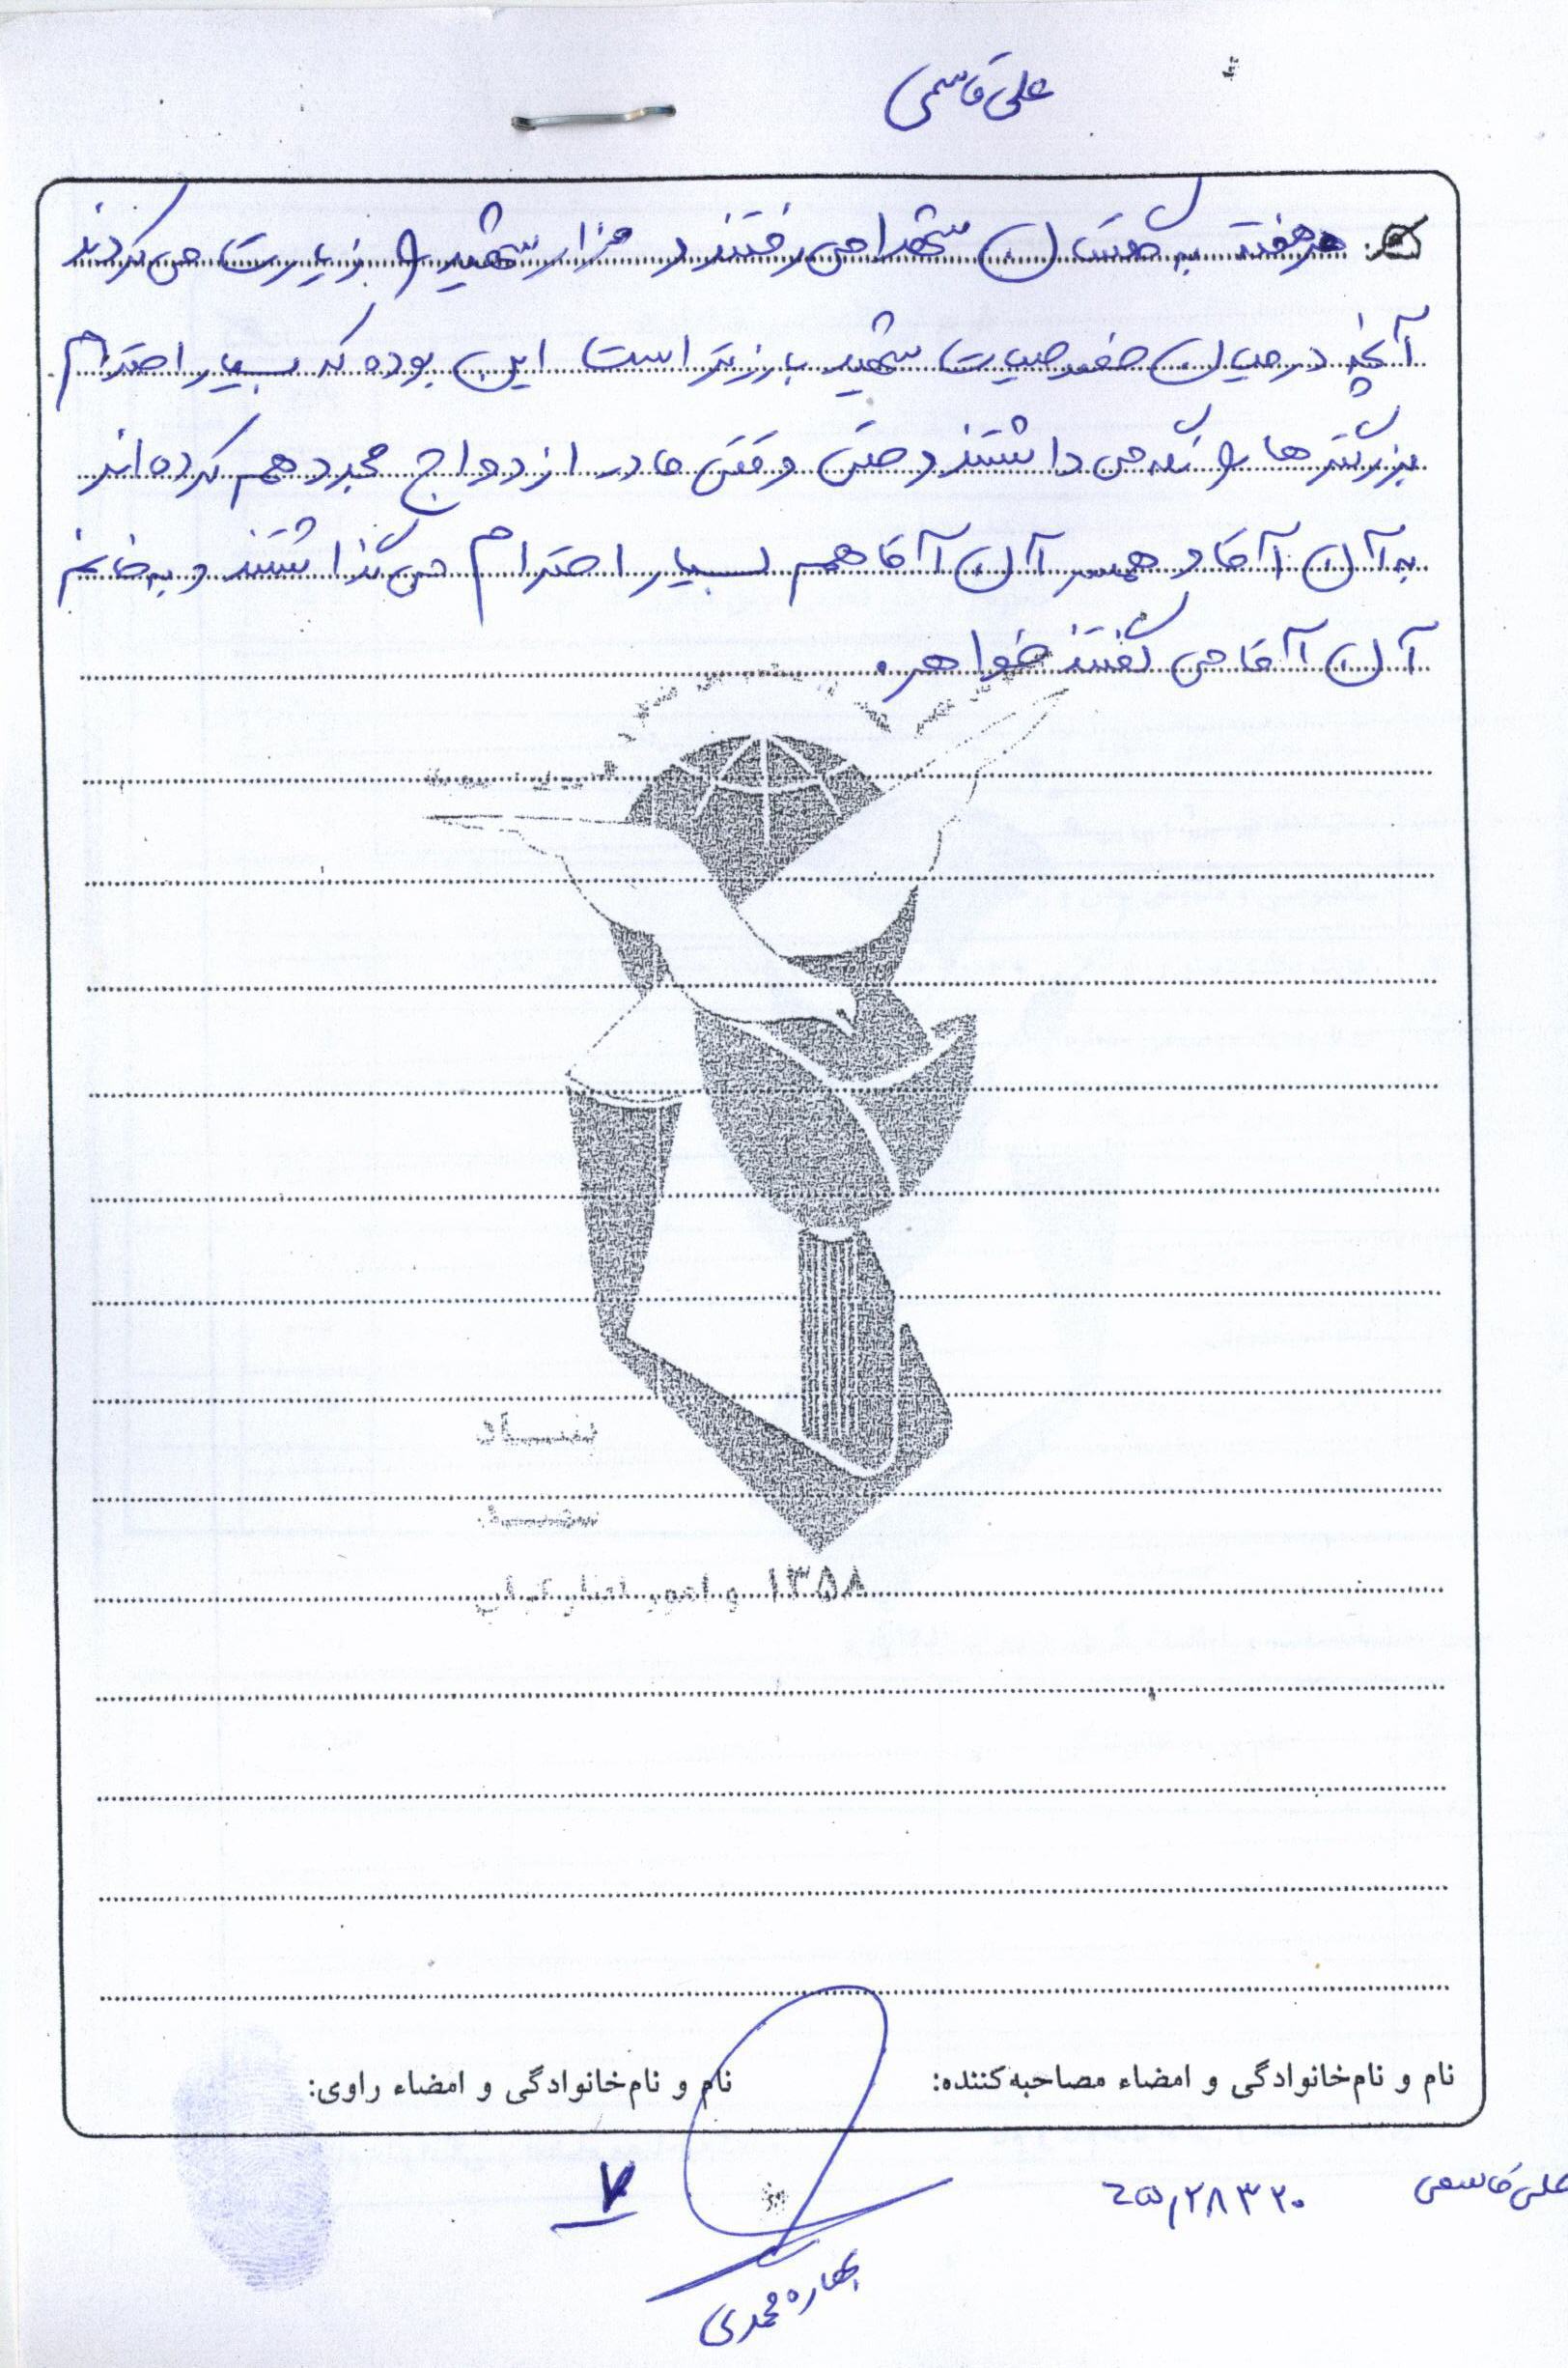 علی قاسمی
هر هفته به گلستان شهدا می رفتند و مزار شهید را زیارت می کردند
آنچه در میان خصوصیات شهید بارزتر است این بوده که بسیار احترام
بزرگترها را نگه می داشتند و حتی وقتی مادر ازدواج مجدد هم کرده اند
به آن آقا و همسر آن آقا هم بسیار احترام می گذاشتند و به خانم
آن آقا می گفتند خواهر.
بنیاد
شهید
و امور ایثارگران ۱۳۵۸
نام و نام‌خانوادگی و امضاء مصاحبه‌کننده:
نام و نام‌خانوادگی و امضاء راوی:
علی قاسمی
۲۸۳۲۰
۷
بهاره محمدی